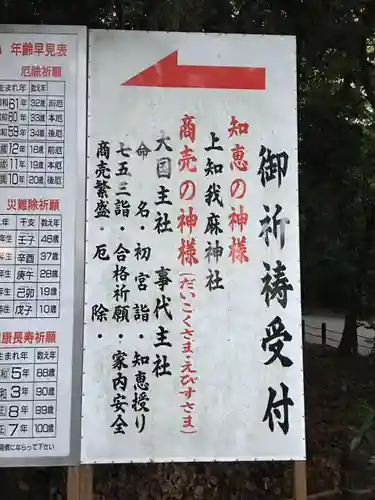 年齢早見表
厄除祈願
生まれ年 数え年
和61年 32歳 前厄
和60年 33歳 本厄
和59年 34歳 後厄
成12年 18歳 前厄
成11年 19歳 本厄
成10年 20歳 後厄
災難除祈願
年 干支 数え年
年生 壬子 46歳
年生 辛酉 37歳
年生 庚午 28歳
年生 己卯 19歳
年生 戊子 10歳
康長寿祈願
生まれ年 数え年
和5年 88歳
和3年 90歳
8年 99歳
正7年 100歳
になりますのでご注意下さい
御祈祷受付
知恵の神様
上知我麻神社
商売の神様(だいこくさま・えびすさま)
大国主社 事代主社
命名・初宮詣・知恵授り
七五三詣・合格祈願・家内安全
商売繁盛・厄除・